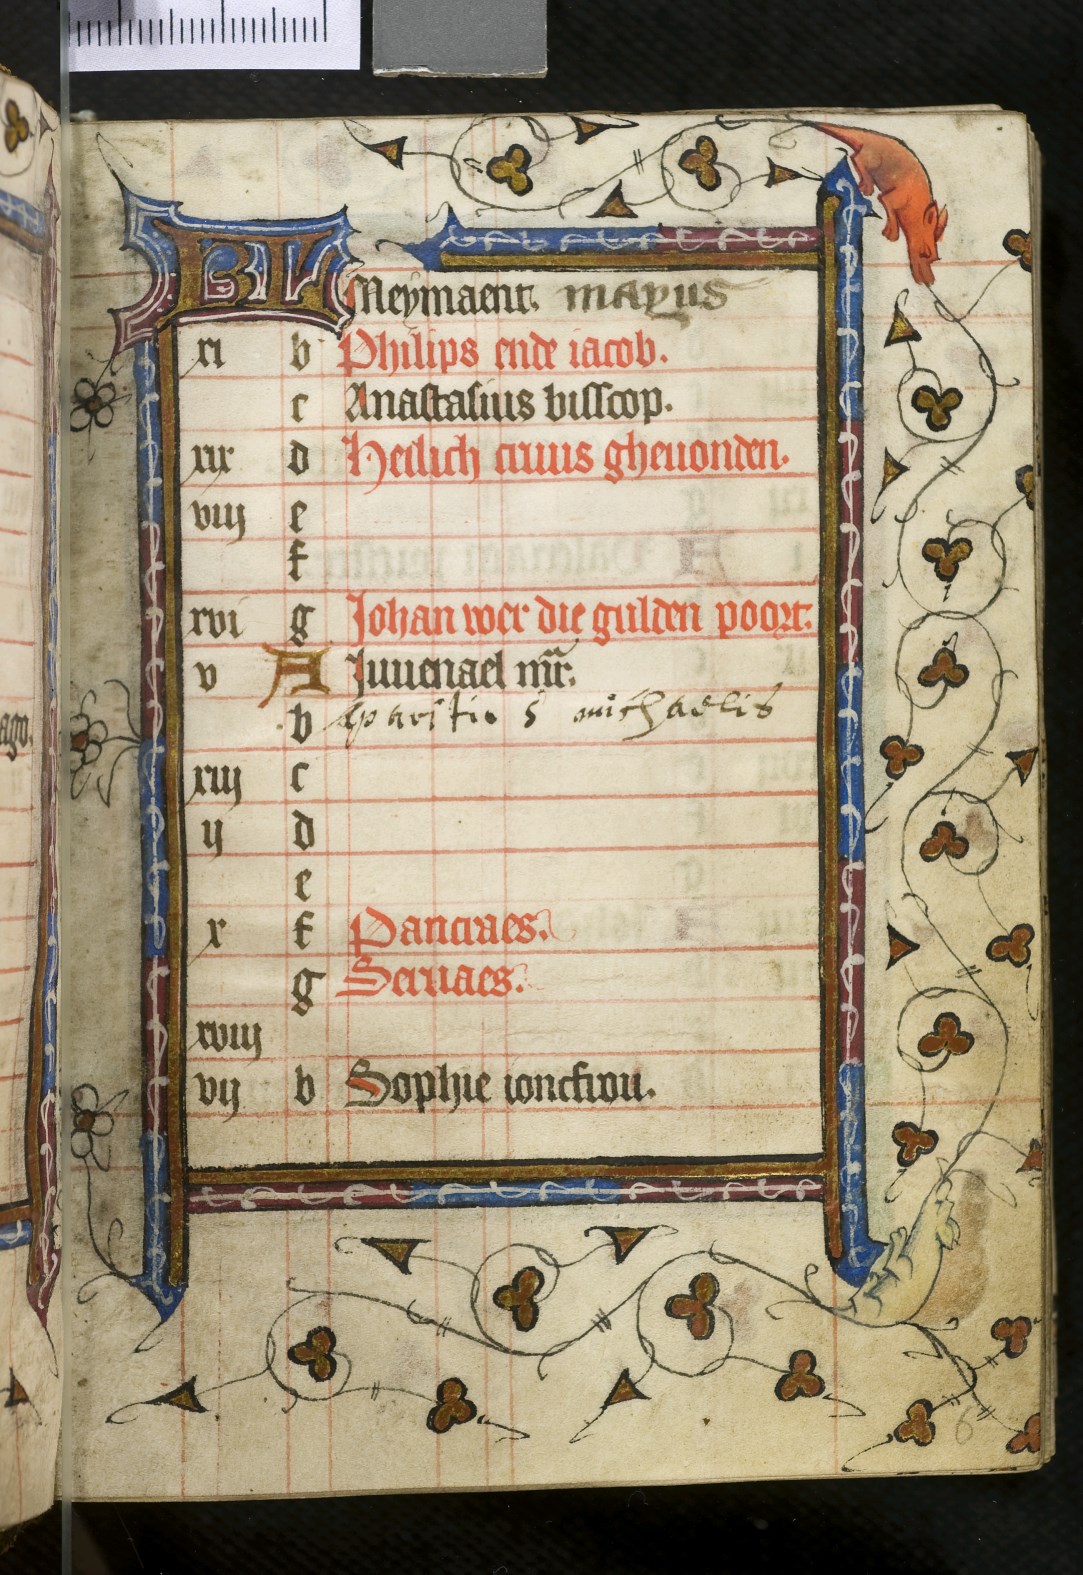 KL Meymaent. mayus
xi b Philips ende iacob.
c Anastasius bisscop.
xix d Heilich cruus gheuonden.
viij e
f
xvi g Johan voer die gulden poort.
v A Juuenael mr.
b aparitio s michaelis
xiij c
ij d
e
x f Pancraes.
g Seruaes.
xviij
vij b Sophie ioncfrou.
6